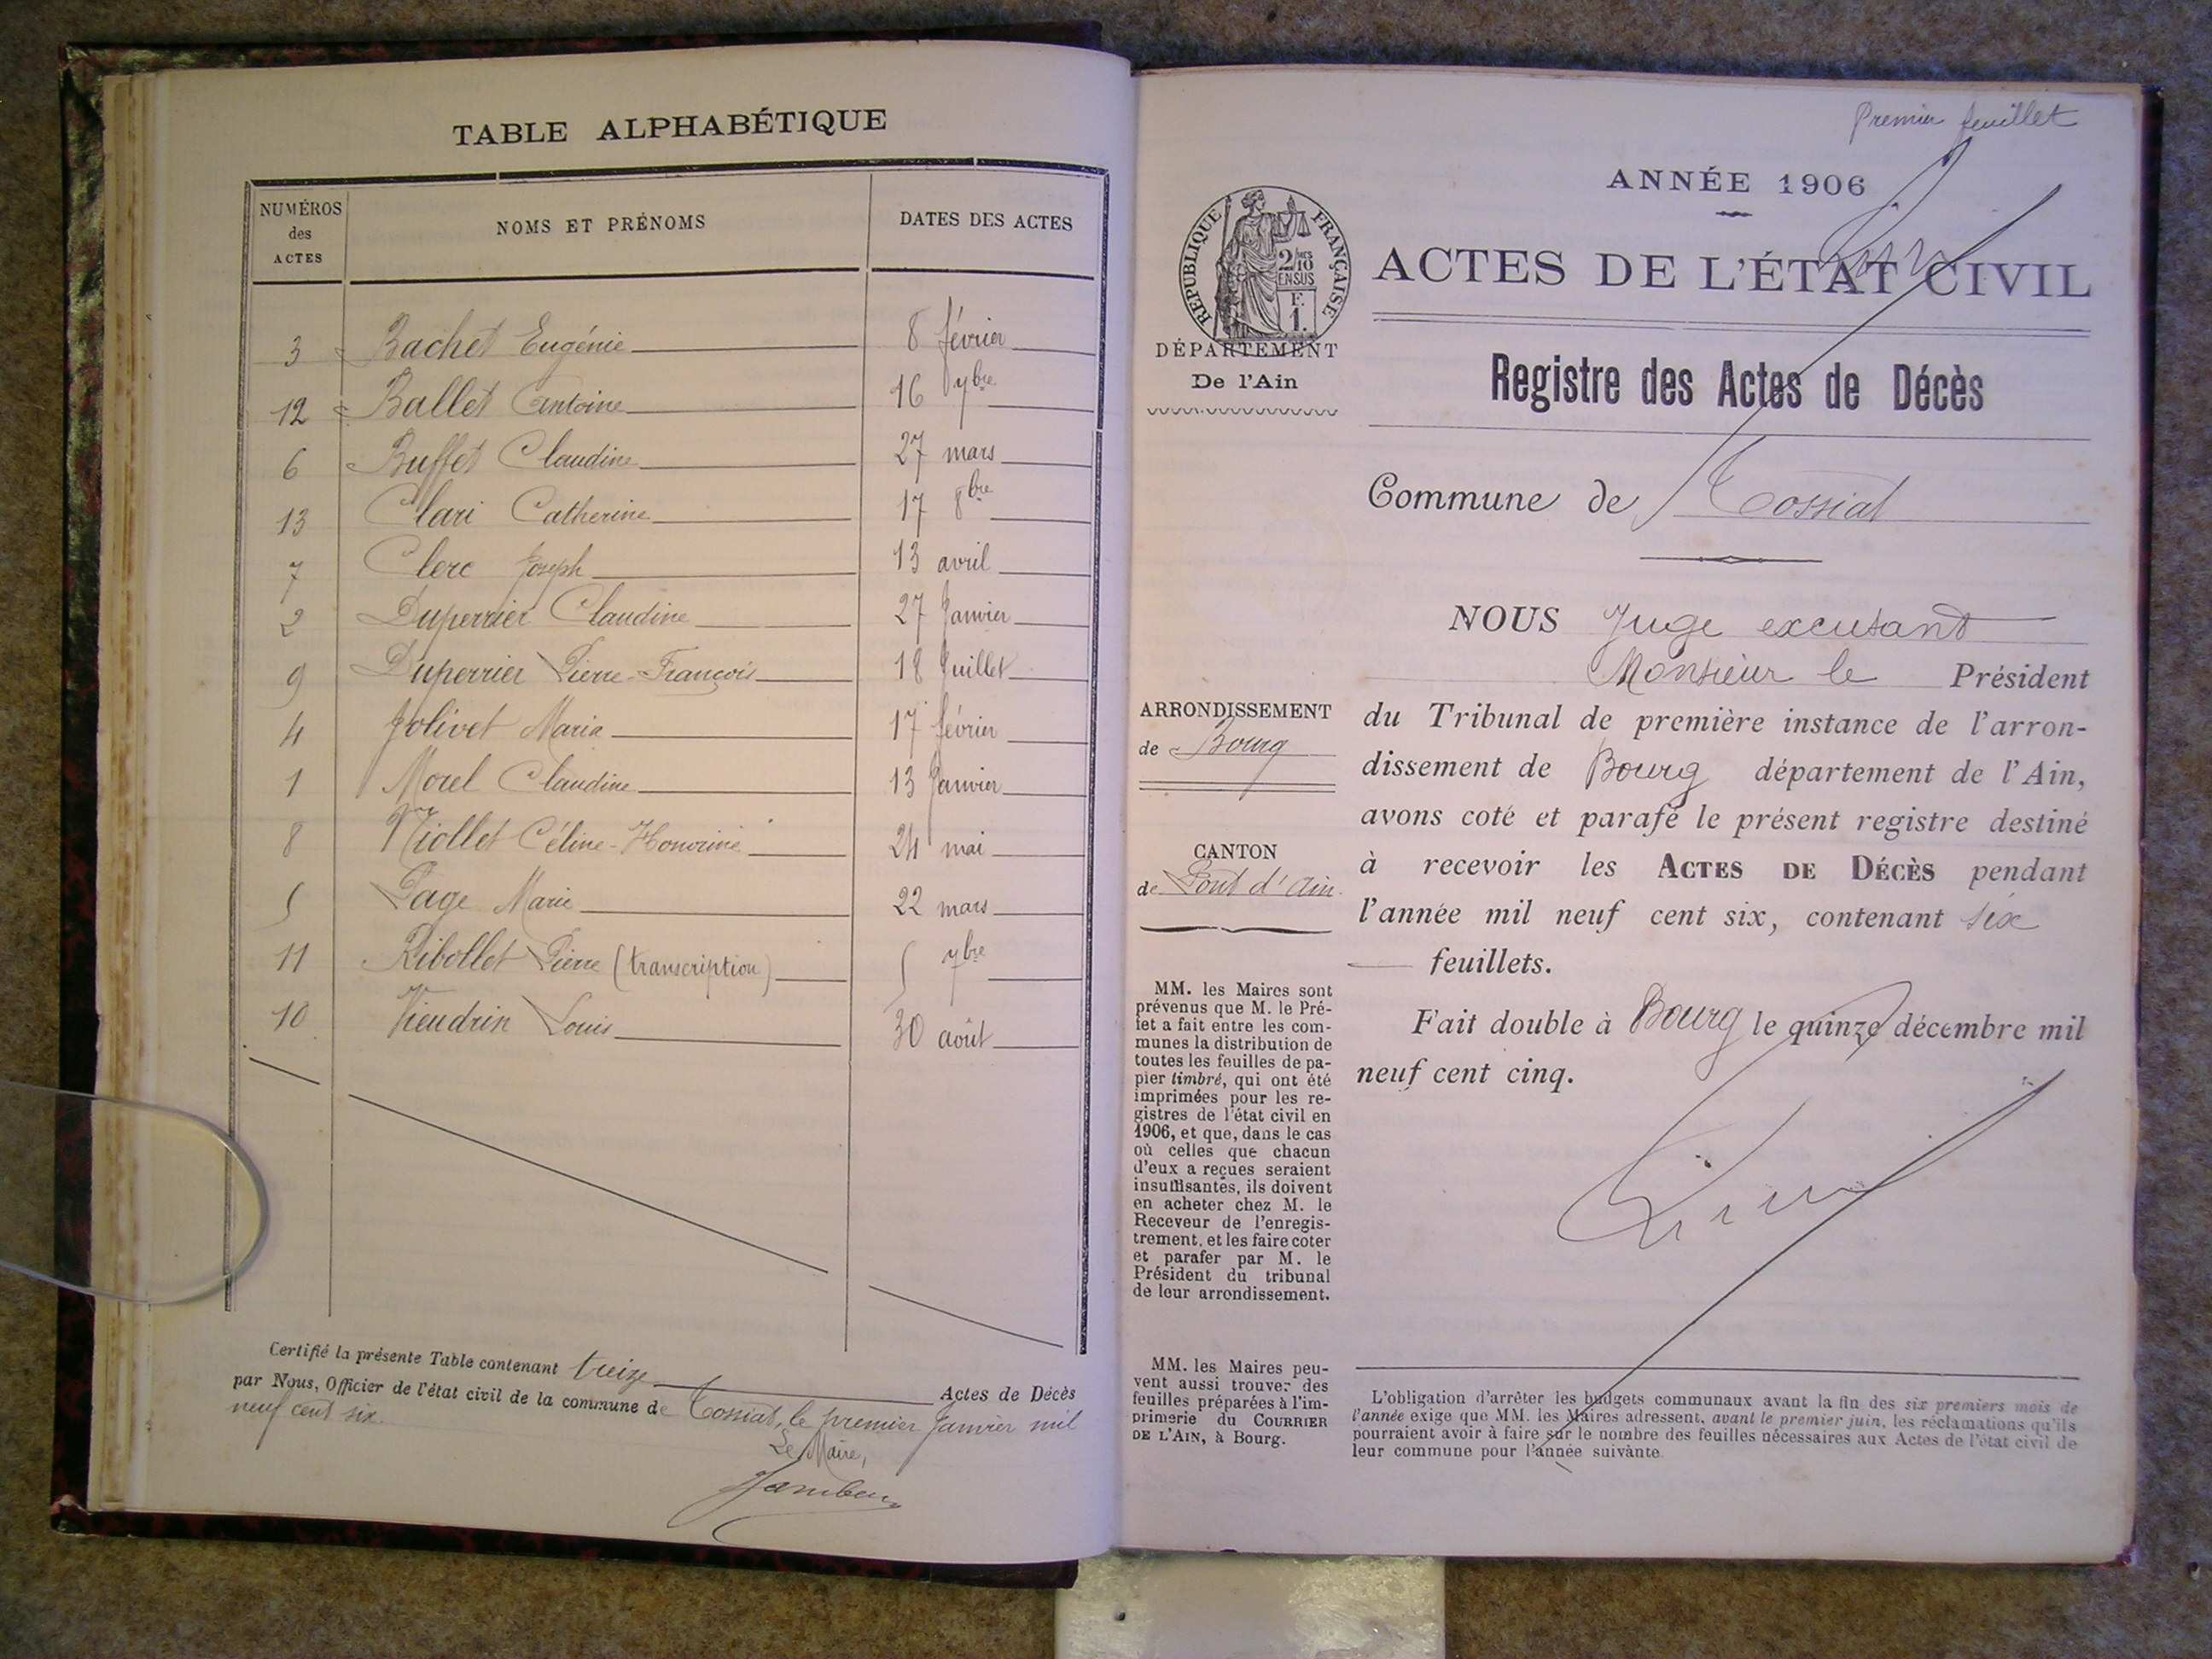 TABLE ALPHABÉTIQUE
NUMÉROS des ACTES NOMS ET PRÉNOMS DATES DES ACTES
3 Bachet Eugénie 8 février
12 Ballet Antoine 16 7bre
6 Buffet Claudine 27 mars
13 Clari Catherine 17 8bre
7 Clerc Joseph 13 avril
2 Duperrier Claudine 27 Janvier
9 Duperrier Pierre-François 18 Juillet
4 Jolivet Maria 17 février
1 Morel Claudine 13 Janvier
8 Niollet Céline-Honorine 24 mai
5 Page Marie 22 mars
11 Ribollet Pierre (transcription) 5 7bre
10 Vieudrin Louis 30 août
Certifié la présente Table contenant treize Actes de Décès
par Nous, Officier de l'état civil de la commune de Tossiat, le premier Janvier mil
neuf cent six.
Le Maire,
Premier feuillet
ANNÉE 1906
ACTES DE L'ÉTAT CIVIL
Registre des Actes de Décès
Commune de Tossiat
NOUS Juge excusant
Monsieur le Président
du Tribunal de première instance de l'arron-
dissement de Bourg département de l'Ain,
avons coté et parafé le présent registre destiné
à recevoir les ACTES DE DÉCÈS pendant
l'année mil neuf cent six, contenant six
feuillets.
Fait double à Bourg le quinze décembre mil
neuf cent cinq.
RÉPUBLIQUE FRANÇAISE
2/10 MES
EN SUS
F.
1.
DÉPARTEMENT
De l'Ain
ARRONDISSEMENT
de Bourg
CANTON
de Pont d'Ain
MM. les Maires sont
prévenus que M. le Pré-
fet a fait entre les com-
munes la distribution de
toutes les feuilles de pa-
pier timbré, qui ont été
imprimées pour les re-
gistres de l'état civil en
1906, et que, dans le cas
où celles que chacun
d'eux a reçues seraient
insuffisantes, ils doivent
en acheter chez M. le
Receveur de l'enregis-
trement, et les faire coter
et parafer par M. le
Président du tribunal
de leur arrondissement.
MM. les Maires peu-
vent aussi trouver des
feuilles préparées à l'im-
primerie du COURRIER
DE L'AIN, à Bourg.
L'obligation d'arrêter les budgets communaux avant la fin des six premiers mois de
l'année exige que MM. les Maires adressent, avant le premier juin, les réclamations qu'ils
pourraient avoir à faire sur le nombre des feuilles nécessaires aux Actes de l'état civil de
leur commune pour l'année suivante.